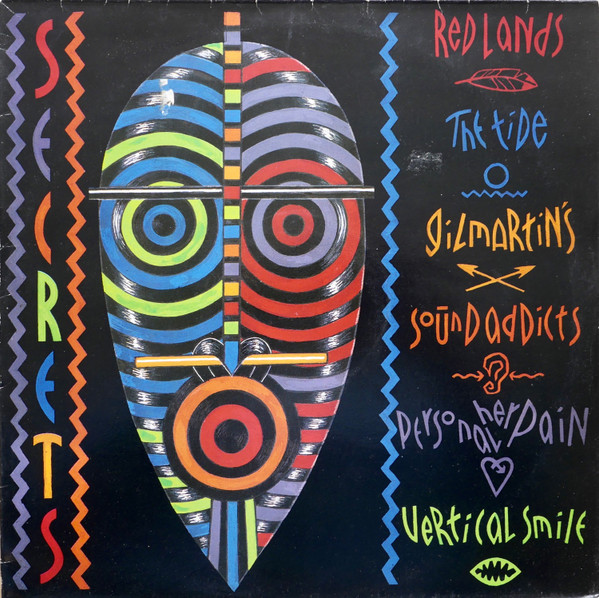 SECRETS
RED LANDS
THE TIDE
GILMARTIN'S
SOUND ADDICTS
HER PERSONAL PAIN
VERTICAL SMILE